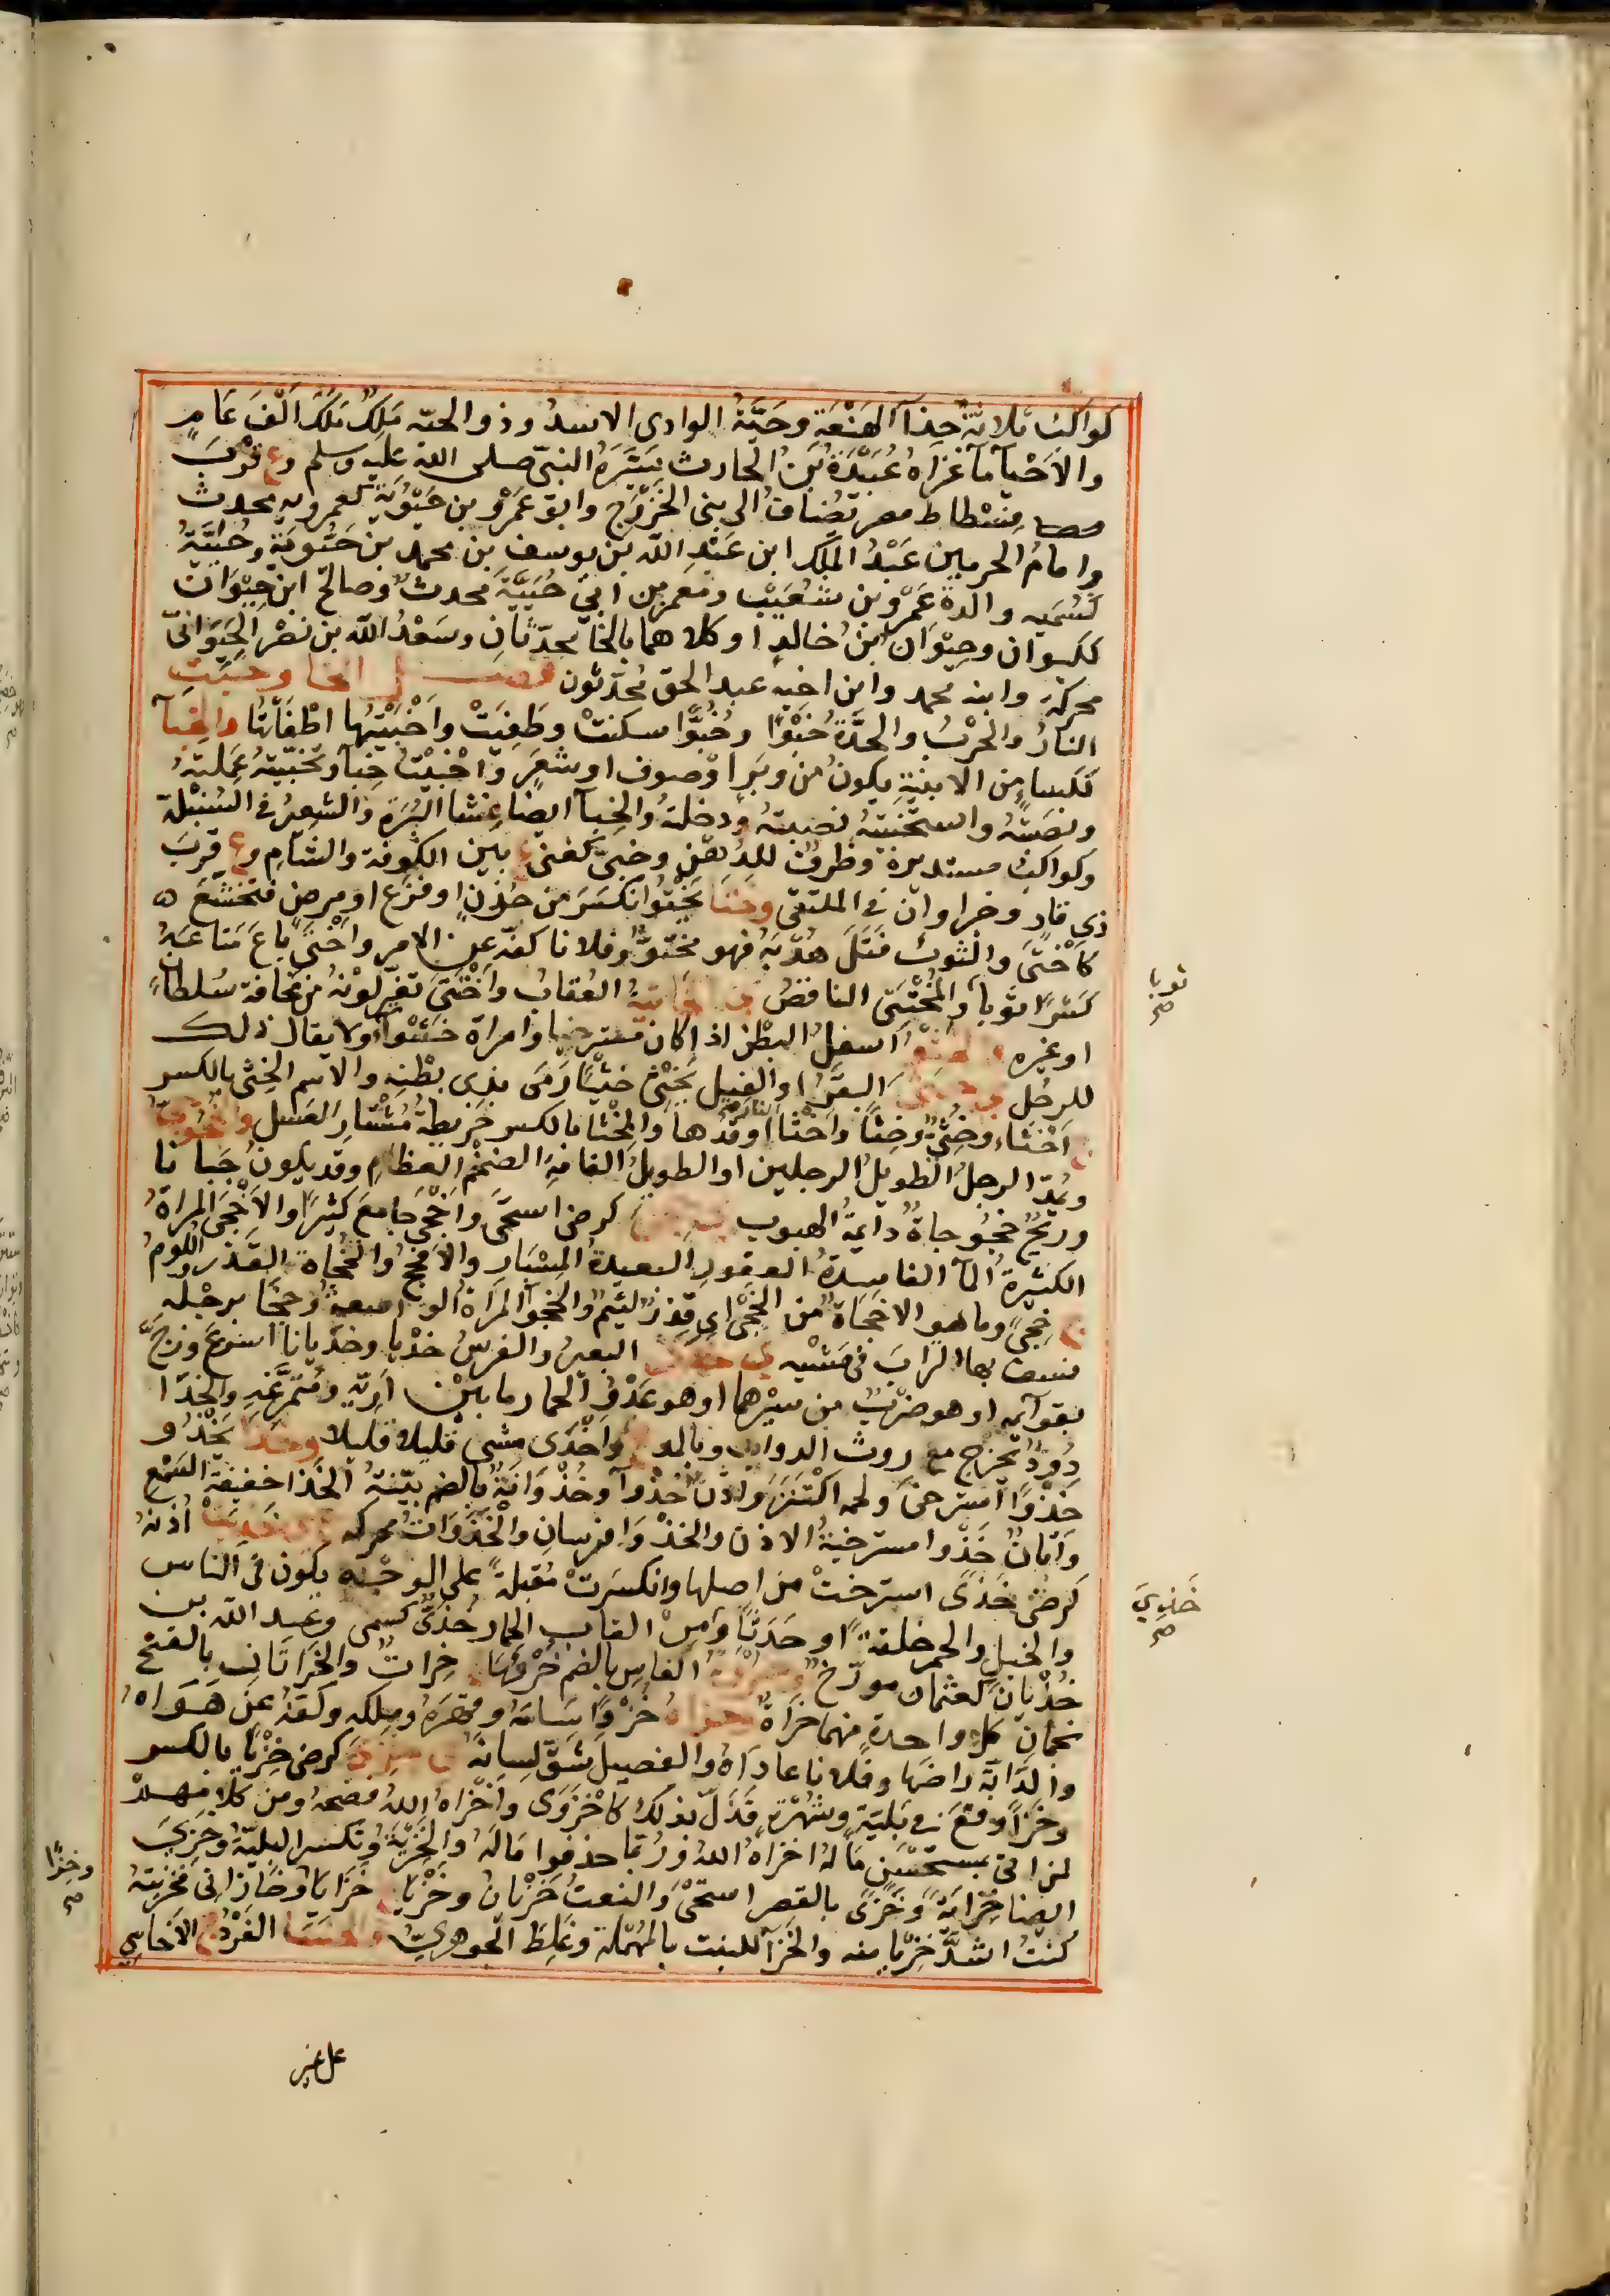 كواكب ثلاثة حذآ الهَنْعَةِ وحَيَّةُ الوادى الاسدُ وذو الحيّه مَلِكٌ مَلَكَ اَلْفَ عَامٍ
والاَحْيآ مآ غزاهُ عُبَيْدَةُ بْنُ الحارث سَيَّرَهُ النبىّ صلى اللهُ عليه وسلم وع قُرْبَ
فسْطاط مصر تُضافُ الى بنى الخَزْرَج وابو عَمْرو بن حَيُّوْيَةَ كعمرويه محدث
وامامُ الحرمين عَبْدُ الملك ابن عَبْدِ اللّه بن يوسف بن محمد بن حَيُّويَةَ وحُيَيَّةُ
كسُمَيه والدة عَمْرو بن شُعَيْب ومعمر بن ابى حُيَيَّةَ محدث وصالح ابن حِيْوَان
ككيوان وحِيْوَان بْنُ خالدٍ او كلاهما بالخآ محدّثانِ وسَعْدُ اللّه بن نصْر الحَيَوَانىّ
محركةً وابنه محمد وابن اخيه عبد الحق مُحَدّثون فصــل الخا وخَبَتِ
النارُ والحَرْبُ والحِدَّةُ خَبْوًا وخُبُوًّا سكنتْ وطَفِئَتْ واَخْبَيْتُها اطْفَأتُها والخِبآ
ككساءٍ من الابنيةِ يكونُ من وَبَرٍ اوْ صوف او شَعَرٍ واَخْبَيْتُ خِبآ وتخَبَّيتُه عَمِلتهُ
ونصَبْتُهُ واستَخْبَيْتُه نصبتهُ ودخلتُه والخِبآ ايضا غِشا البُرَّةِ والشَّعيرةِ فى السُنبْلة
وكواكبُ مستديرة وظرفٌ للدُهْنِ وخبىّ كغنى ع بين الكوفة والشامِ وع قُربَ
ذى قارٍ وخبراوان فى الملتقى وختَا يَخْتُو انكسَرَ من حُزنٍ او فزَع او مرض فتخشّعَ
كاَخْتتَى والثوبَ فَتَلَ هُدْبَهُ فهو مختُوٌّ وفلانا كفّه عن الامر واَخْتى باعَ متاعَهُ
كَسْرًا ثوبًا والمُخْتَتى الناقصُ ى الخاتيةُ العُقابُ واخْتتَى تغيّر لونُه من مخافة سُلطانٍ
او غيره والخَثْوَة اسفلُ البَطْن اذا كان مسترخيا وامراة خَثْوآ ولا يقال ذلك
للرجُل ى خَثَى البَقَرُ او الفيل يَخْثى خَثْيًا رَمَى بذى بطْنِهِ والاسم الخِثْى بالكسر
ج اَخْثاء وخُثِىٌّ وخِثِىٌّ واَخْثا النارَ اوقدها والمِخْثا بالكسر خريطةُ مُشْتارِ العَسَل
ويُمدّ الرجلُ الطويلُ الرجلين او الطويلُ القامةِ الضخمُ العظامِ وقد يكونُ جَبانا
وريحٌ خجُوجاةٌ دايمةُ الهبوب كرضى استحَى واَخْجَى جامعَ كثيرًا والاَخْجَى المراةُ
الكثيرةُ المآ الفاسدةُ القعورِ البعيدةُ المِسْبَارِ والاَفْحَجُ والخَجَاة القَذَر واللُؤمُ
ج خِجىً وما هو الا خَجاةٌ من الخُجَى اى قَذِرٌ لئيمٌ والخَجْوآ المراةُ الواسعةُ وخَجَا برجْله
نسف بها الترابَ فى مَشْيه ى خذى البعيرُ والفرسُ خَدْيا وخدَيانا اسْرعَ وزجّ
بقوآئمه او هو ضرْبٌ من سيْرهما او هو عَدْوُ الحمار ما بيْن اَرِيّه ومُتَمَرَّغهِ والخَدَا
دُودٌ تخرج مع روث الدوابّ وبالمد ع واَخْدَى مشى قليلا قليلا وخذا يَخْذُو
خَذْوًا استرخَى ولحمه اكْتَنَزَ واُذُنٌ خَذْوآ وخُذْوَانِيَّةٌ بالضم بيّنةُ الخَذا خفيفةُ السَمْعِ
وَاَتَانٌ خَذْوا مسترخيةُ الاذن والخذْوا فرسانِ والخَذَوَاتُ محركه ع ى خَذِيَتْ اُذُنُه
كرضى خَذىً استرختْ من اصلها وانكسَرَتْ مُقبِلةً على الوجْه يكون فى الناس
والخيل والحمر خلقةً او حَدَثًا ومن القاب الحمار خُذَىٌّ كسُمى وعبد اللّه بن
خُذْيان كعثمان مورّخ وخراة الفاس بالضم خُرْتُها ج خِراتٌ والخَرَاتانِ بالفتح
نجمان كلّ واحدةٍ منهما خَراةٌ خَزاهُ خَزْوًا سَاسَهُ وقهَرَهُ وملكه وكفهُ عن هَواهُ
والدَّابّة راضَها وفلانا عادَاهُ والفصيلَ شقّ لسانَهُ ى خزى كرضى خِزْيًا بالكسر
وخَزًا وقعَ فى بَليّةٍ وشُهْرَةٍ فذَلّ بذلك كاخْزَوَى واَخْزاهُ اللّهُ فضحهُ ومن كلامهم
لمن اتى بمستحْسَنٍ مَا لَهُ اخزاهُ اللّهُ وربّما حذفوا مَالَهُ والخَزْيَةُ وتكسر البليّةُ وخَزِىَ
ايضا خَزَايَةً وخَزًى بالقصر استَحْىَ والنعتُ خَزْيانُ وخَزْيا ج خَزايا وخَازانى فخزيتُهُ
كنتُ اشدَّ خِزْيا منه والخَزآ للنبت بالمُهْمَلة وغَلِطَ الجوهرىّ والخَسَا الفَرْدُ ج الاَخاسى
ثوبا
صح
خَذِىَ
صح
وخزًا
صح